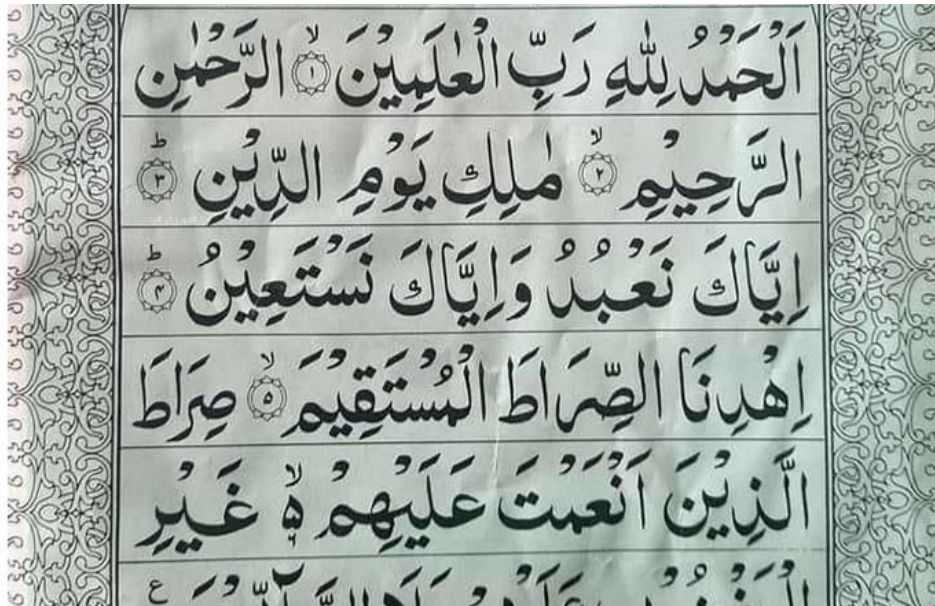 اَلْحَمْدُ لِلّٰهِ رَبِّ الْعٰلَمِيْنَ ۙ‏﴿۱﴾ الرَّحْمٰنِ
الرَّحِيْمِ ۙ‏﴿۲﴾ مٰلِكِ يَوْمِ الدِّيْنِ ؕ‏﴿۳﴾
اِيَّاكَ نَعْبُدُ وَاِيَّاكَ نَسْتَعِيْنُ ؕ‏﴿۴﴾
اِهْدِنَا الصِّرَاطَ الْمُسْتَقِيْمَ ۙ‏﴿۵﴾ صِرَاطَ
الَّذِيْنَ اَنْعَمْتَ عَلَيْهِمْ ۙ۬ۦ غَيْرِ